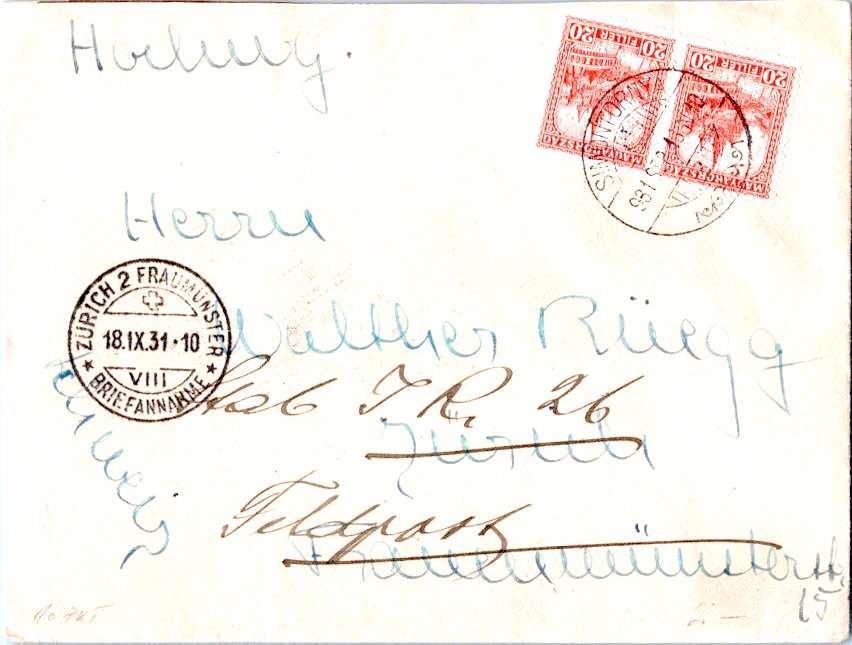 20 FILLER 20
MAGYARORSZÁG
20 FILLER 20
MAGYARORSZÁG
SIMONTORNYA
931
Herrn
ZÜRICH 2 FRAUMÜNSTER
18.IX.31·10
VIII
BRIEFANNAHME
Walther Rüegg
Stab I. R. 26
Zürich
Feldpost
Fraumünsterstr.
15
Schweiz